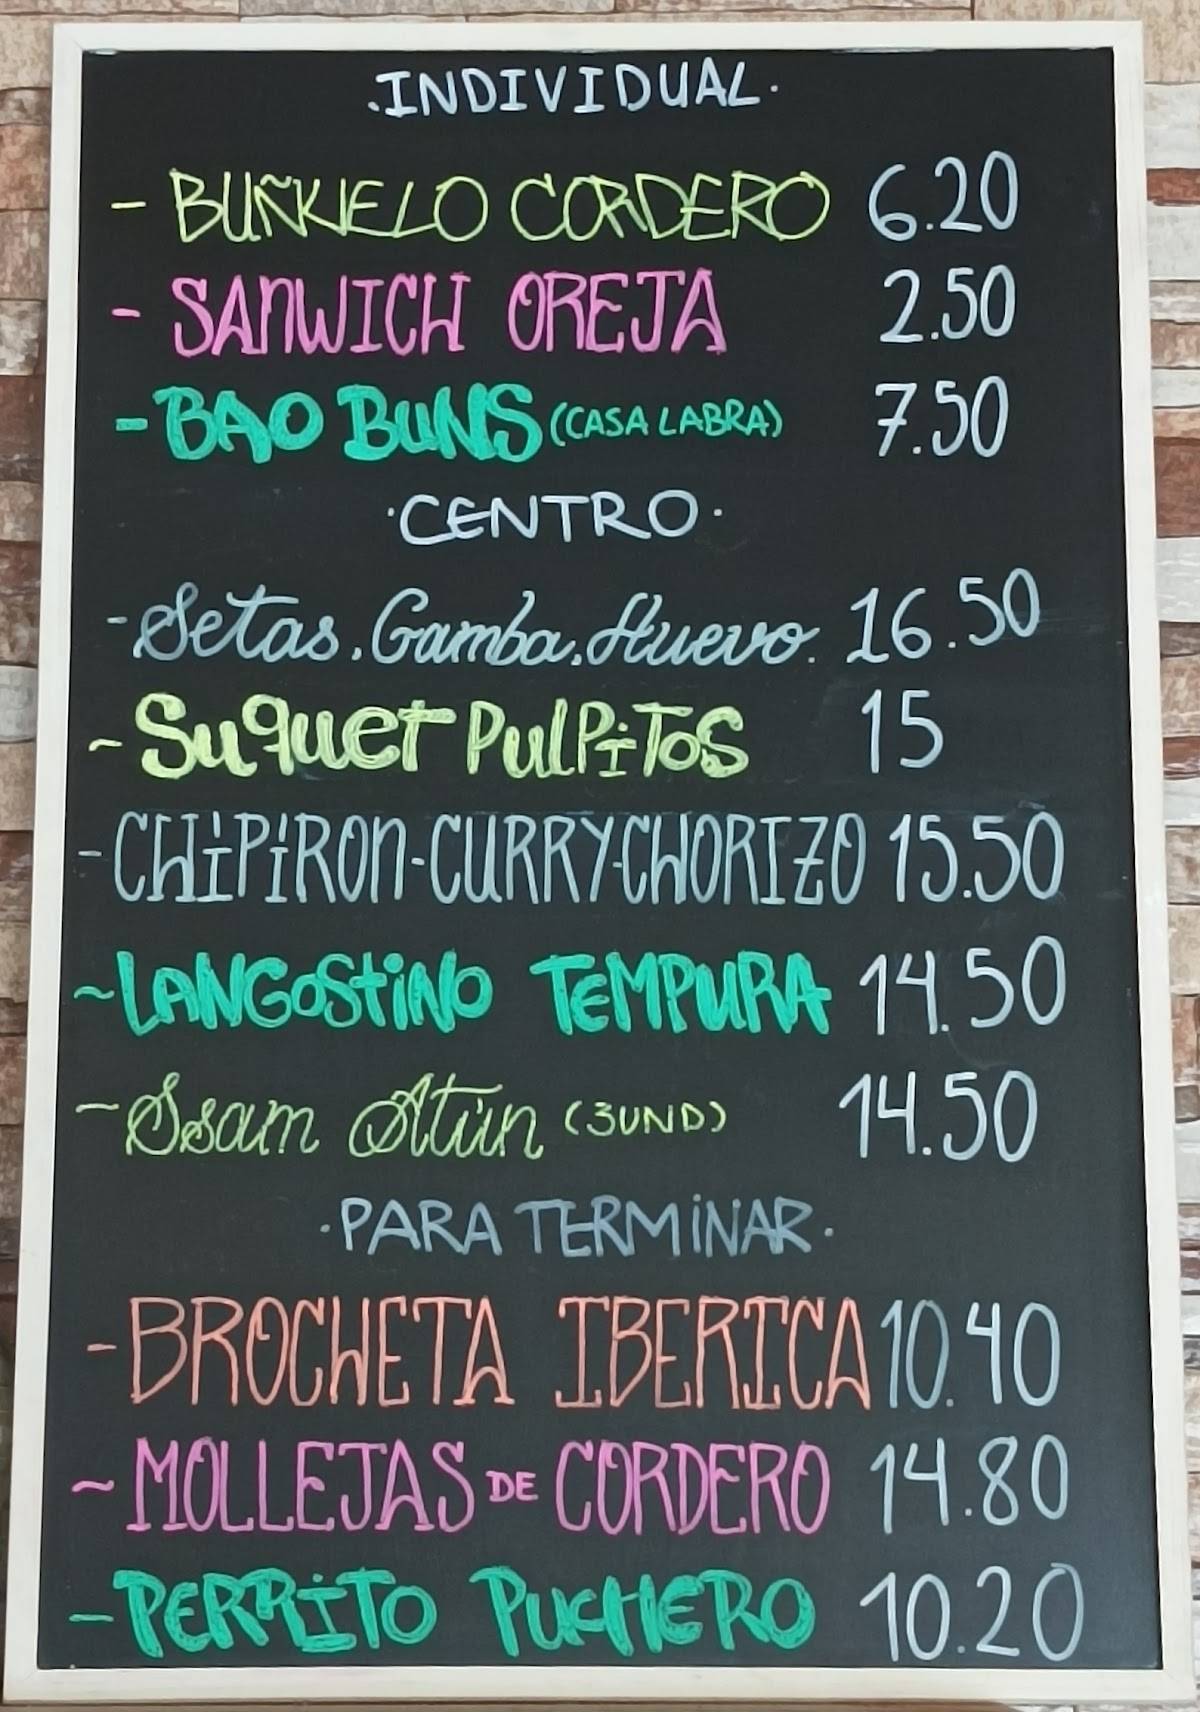 ·INDIVIDUAL·
- BUÑUELO CORDERO 6.20
- SANWICH OREJA 2.50
- BAO BUNS (CASA LABRA) 7.50
·CENTRO·
- Setas, Gamba, Huevo. 16.50
~ SuqueT PulPiToS 15
- CHiPiRON-CURRY-CHORIZO 15.50
~ LANGoStiNO TEMPURA 14.50
- Ssam Atún (3UND) 14.50
·PARA TERMiNAR·
- BROCHETA IBERICA 10.40
~ MOLLEJAS DE CORDERO 14.80
- PERRITO PUCHERO 10.20